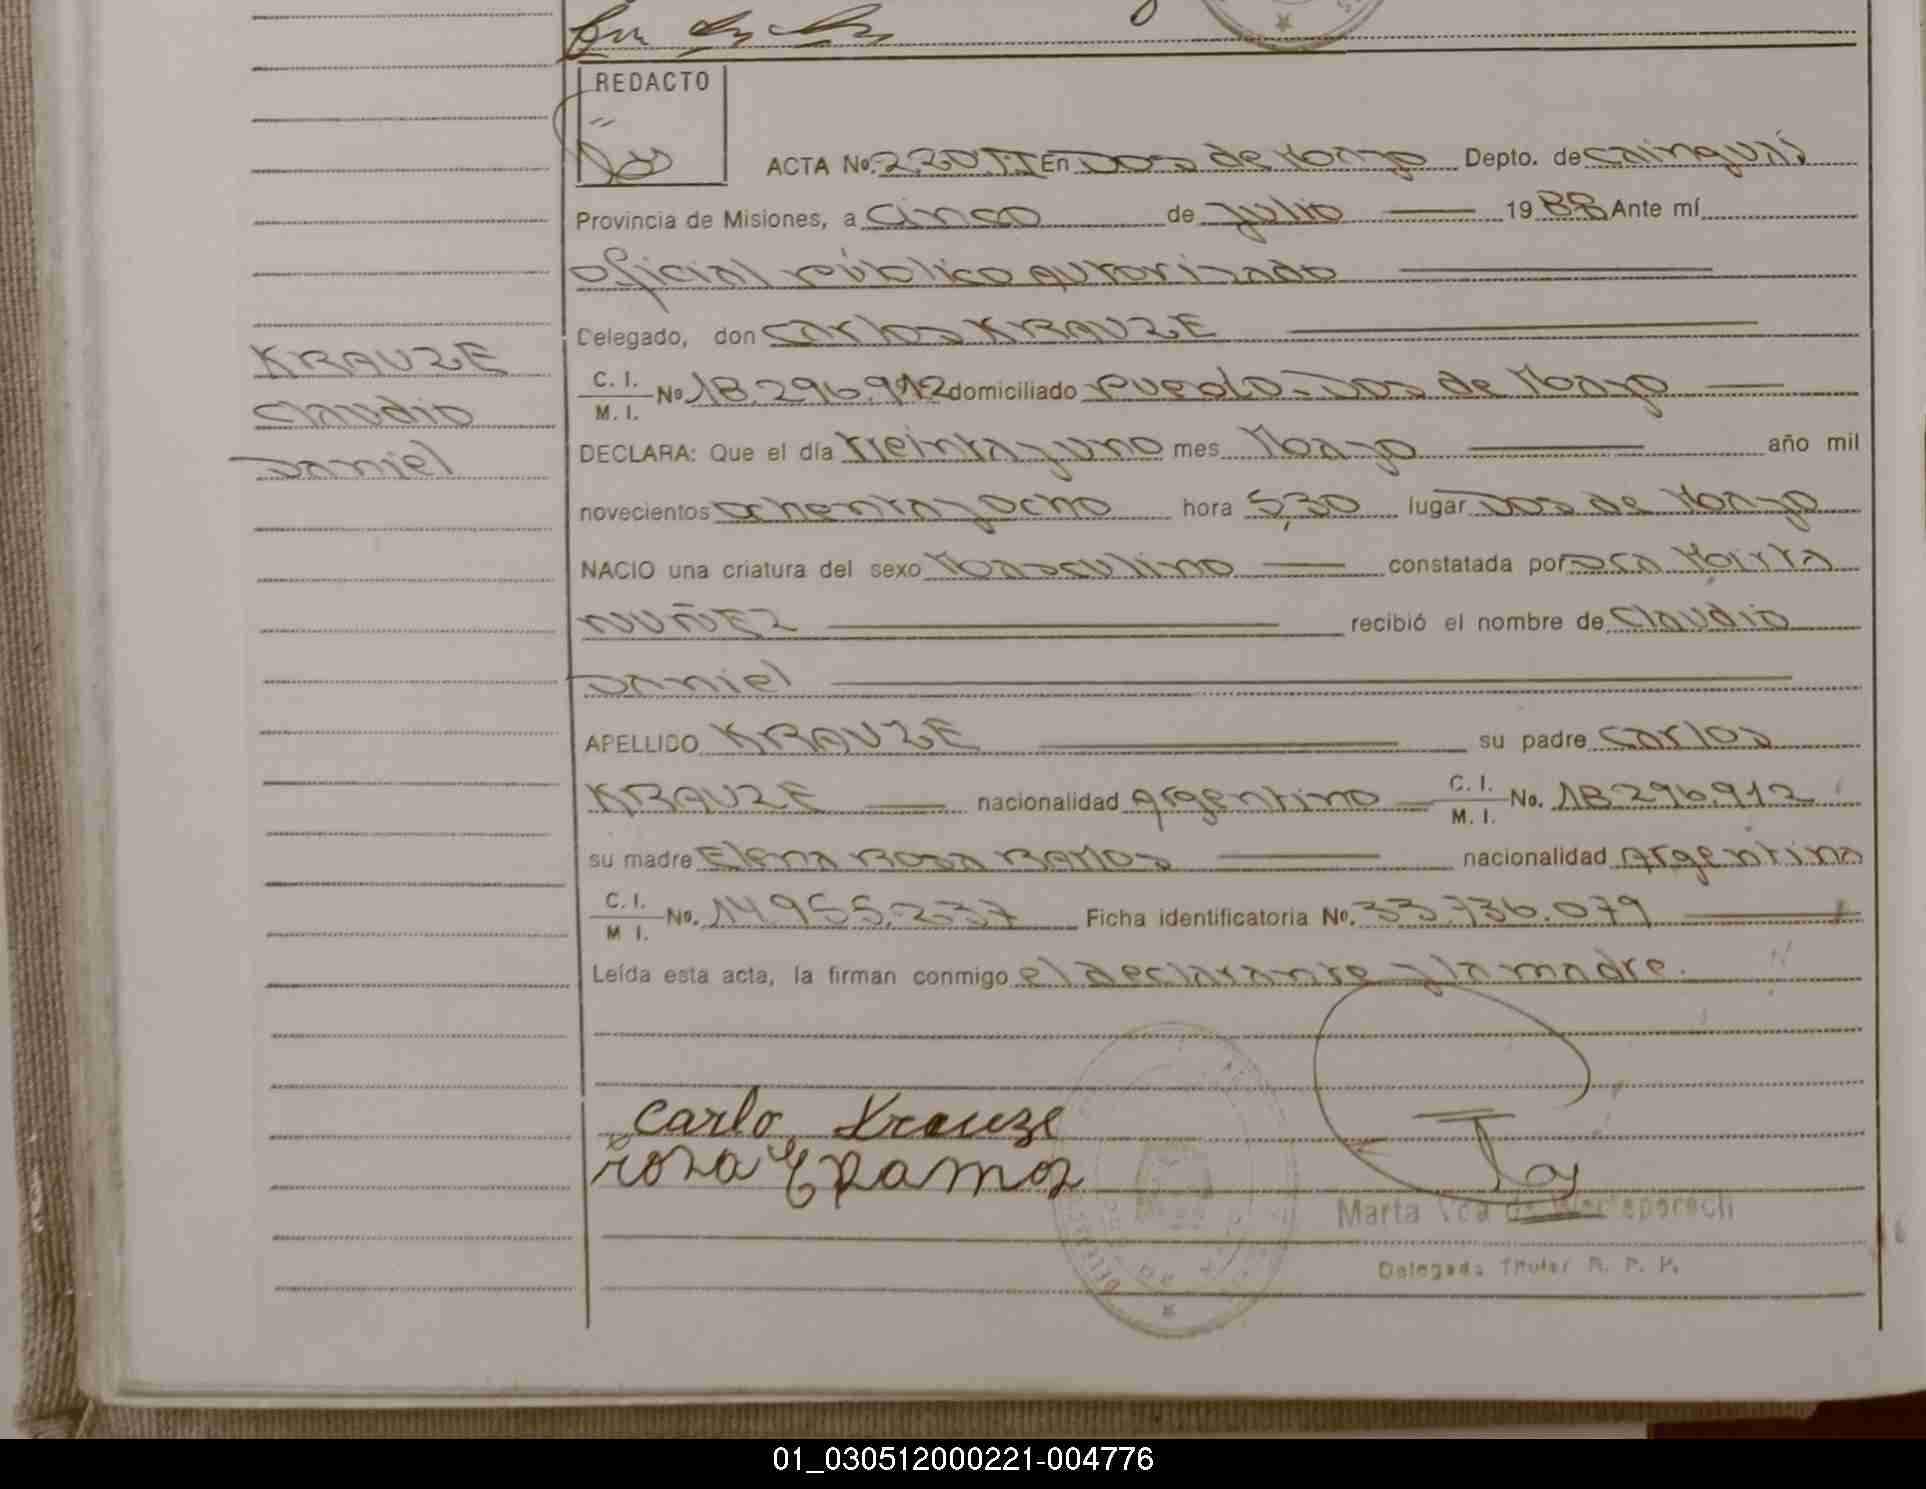 REDACTO
ACTA No. 230.II En Dos de Mayo Depto. de Cainguás
Provincia de Misiones, a cinco de Julio 1988 Ante mí
oficial público autorizado
Delegado, don Carlos KRAUZE
C. I. / M. I. No 18.296.912 domiciliado Pueblo-Dos de Mayo
KRAUZE
Claudio
Daniel
DECLARA: Que el día treinta y uno mes Mayo año mil
novecientos ochenta y ocho hora 5,30 lugar Dos de Mayo
NACIO una criatura del sexo Masculino constatada por Dra Mirta
NUÑEZ recibió el nombre de Claudio
Daniel
APELLIDO KRAUZE su padre Carlos
KRAUZE nacionalidad Argentino C. I. / M. I. No. 18.296.912
su madre Elena Rosa RAMOS nacionalidad Argentina
C. I. / M I. No. 14.955.237 Ficha identificatoria No. 33.736.079
Leída esta acta, la firman conmigo el declarante y la madre.
Carlo Krauze
rosa E Ramos
Marta Vda de
Delegada Titular R. P. P.
01_030512000221-004776